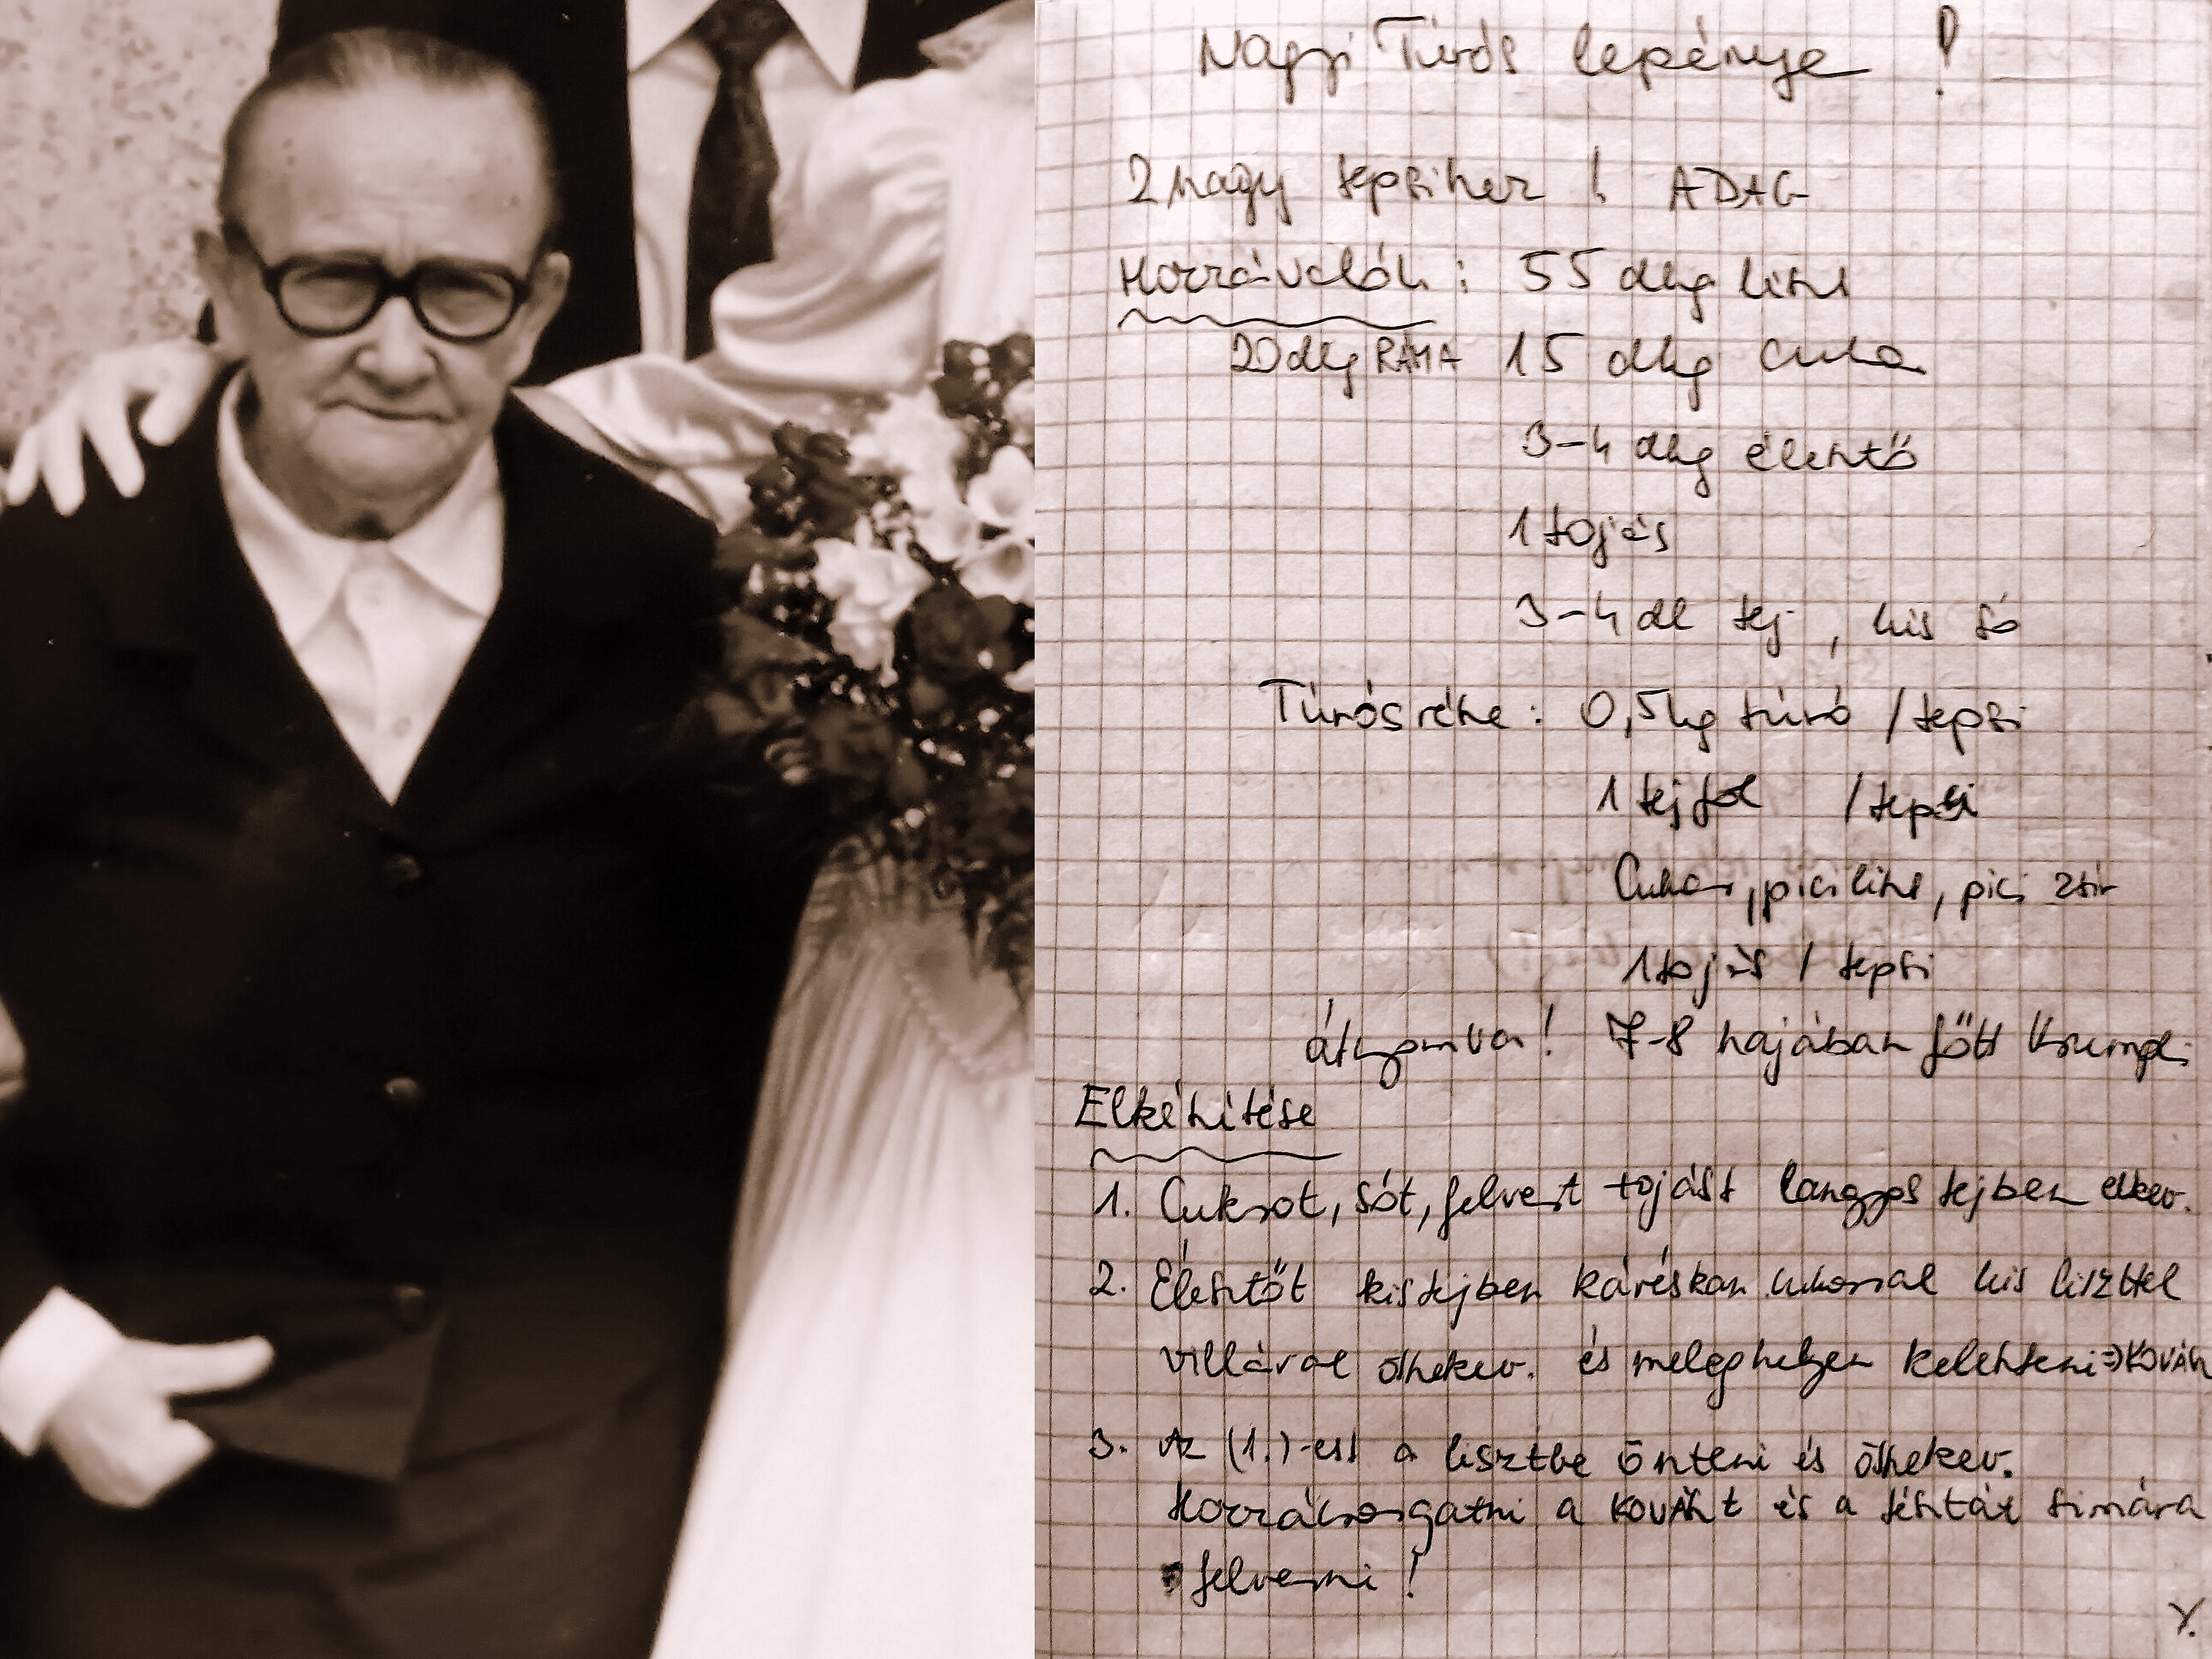 Nagyi Túrós lepénye !
2 nagy tepsihez ! ADAG
Hozzávalók : 55 dkg liszt
20 dkg RAMA 15 dkg cukor
3-4 dkg élesztő
1 tojás
3-4 dl tej , kis só
Túrós része : 0,5 kg túró / tepsi
1 tejföl / tepsi
Cukor, pici liszt, pici zsír
1 tojás / tepsi
átnyomva ! 7-8 hajában főtt krumpli
Elkészítése
1. Cukrot, sót, felvert tojást langyos tejben elkev.
2. Élesztőt kis tejben kávéskan. cukorral kis liszttel
villával összekev. és meleg helyen keleszteni => KOVÁSZ
3. Az (1.)-est a lisztbe önteni és összekev.
Hozzácsorgatni a KOVÁSZt és a tésztát simára
felverni !